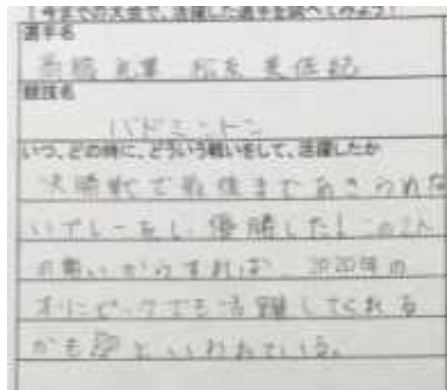 今までの大会で、活躍した選手を調べてみよう!
選手名
高橋 礼華 松友 美佐紀
競技名
バドミントン
いつ、どの時に、どういう戦いをして、活躍したか
決勝戦で最後まであきらめな
いプレーをし、優勝した!この2人
の勢いからすれば、2020年の
オリンピックでも活躍してくれる
かも と いわれている。